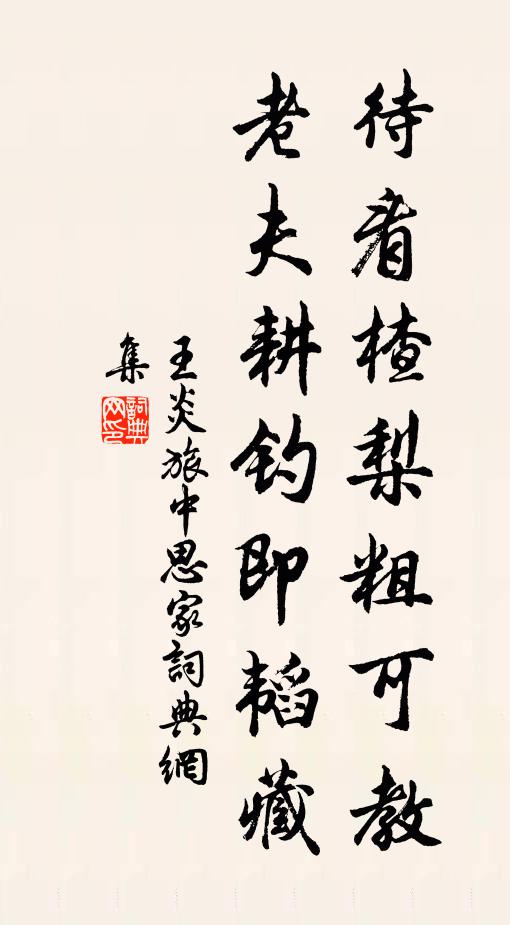 待看楂梨粗可教
老夫耕钓即韬藏
王炎旅中思家詞典網
集
詞典网印